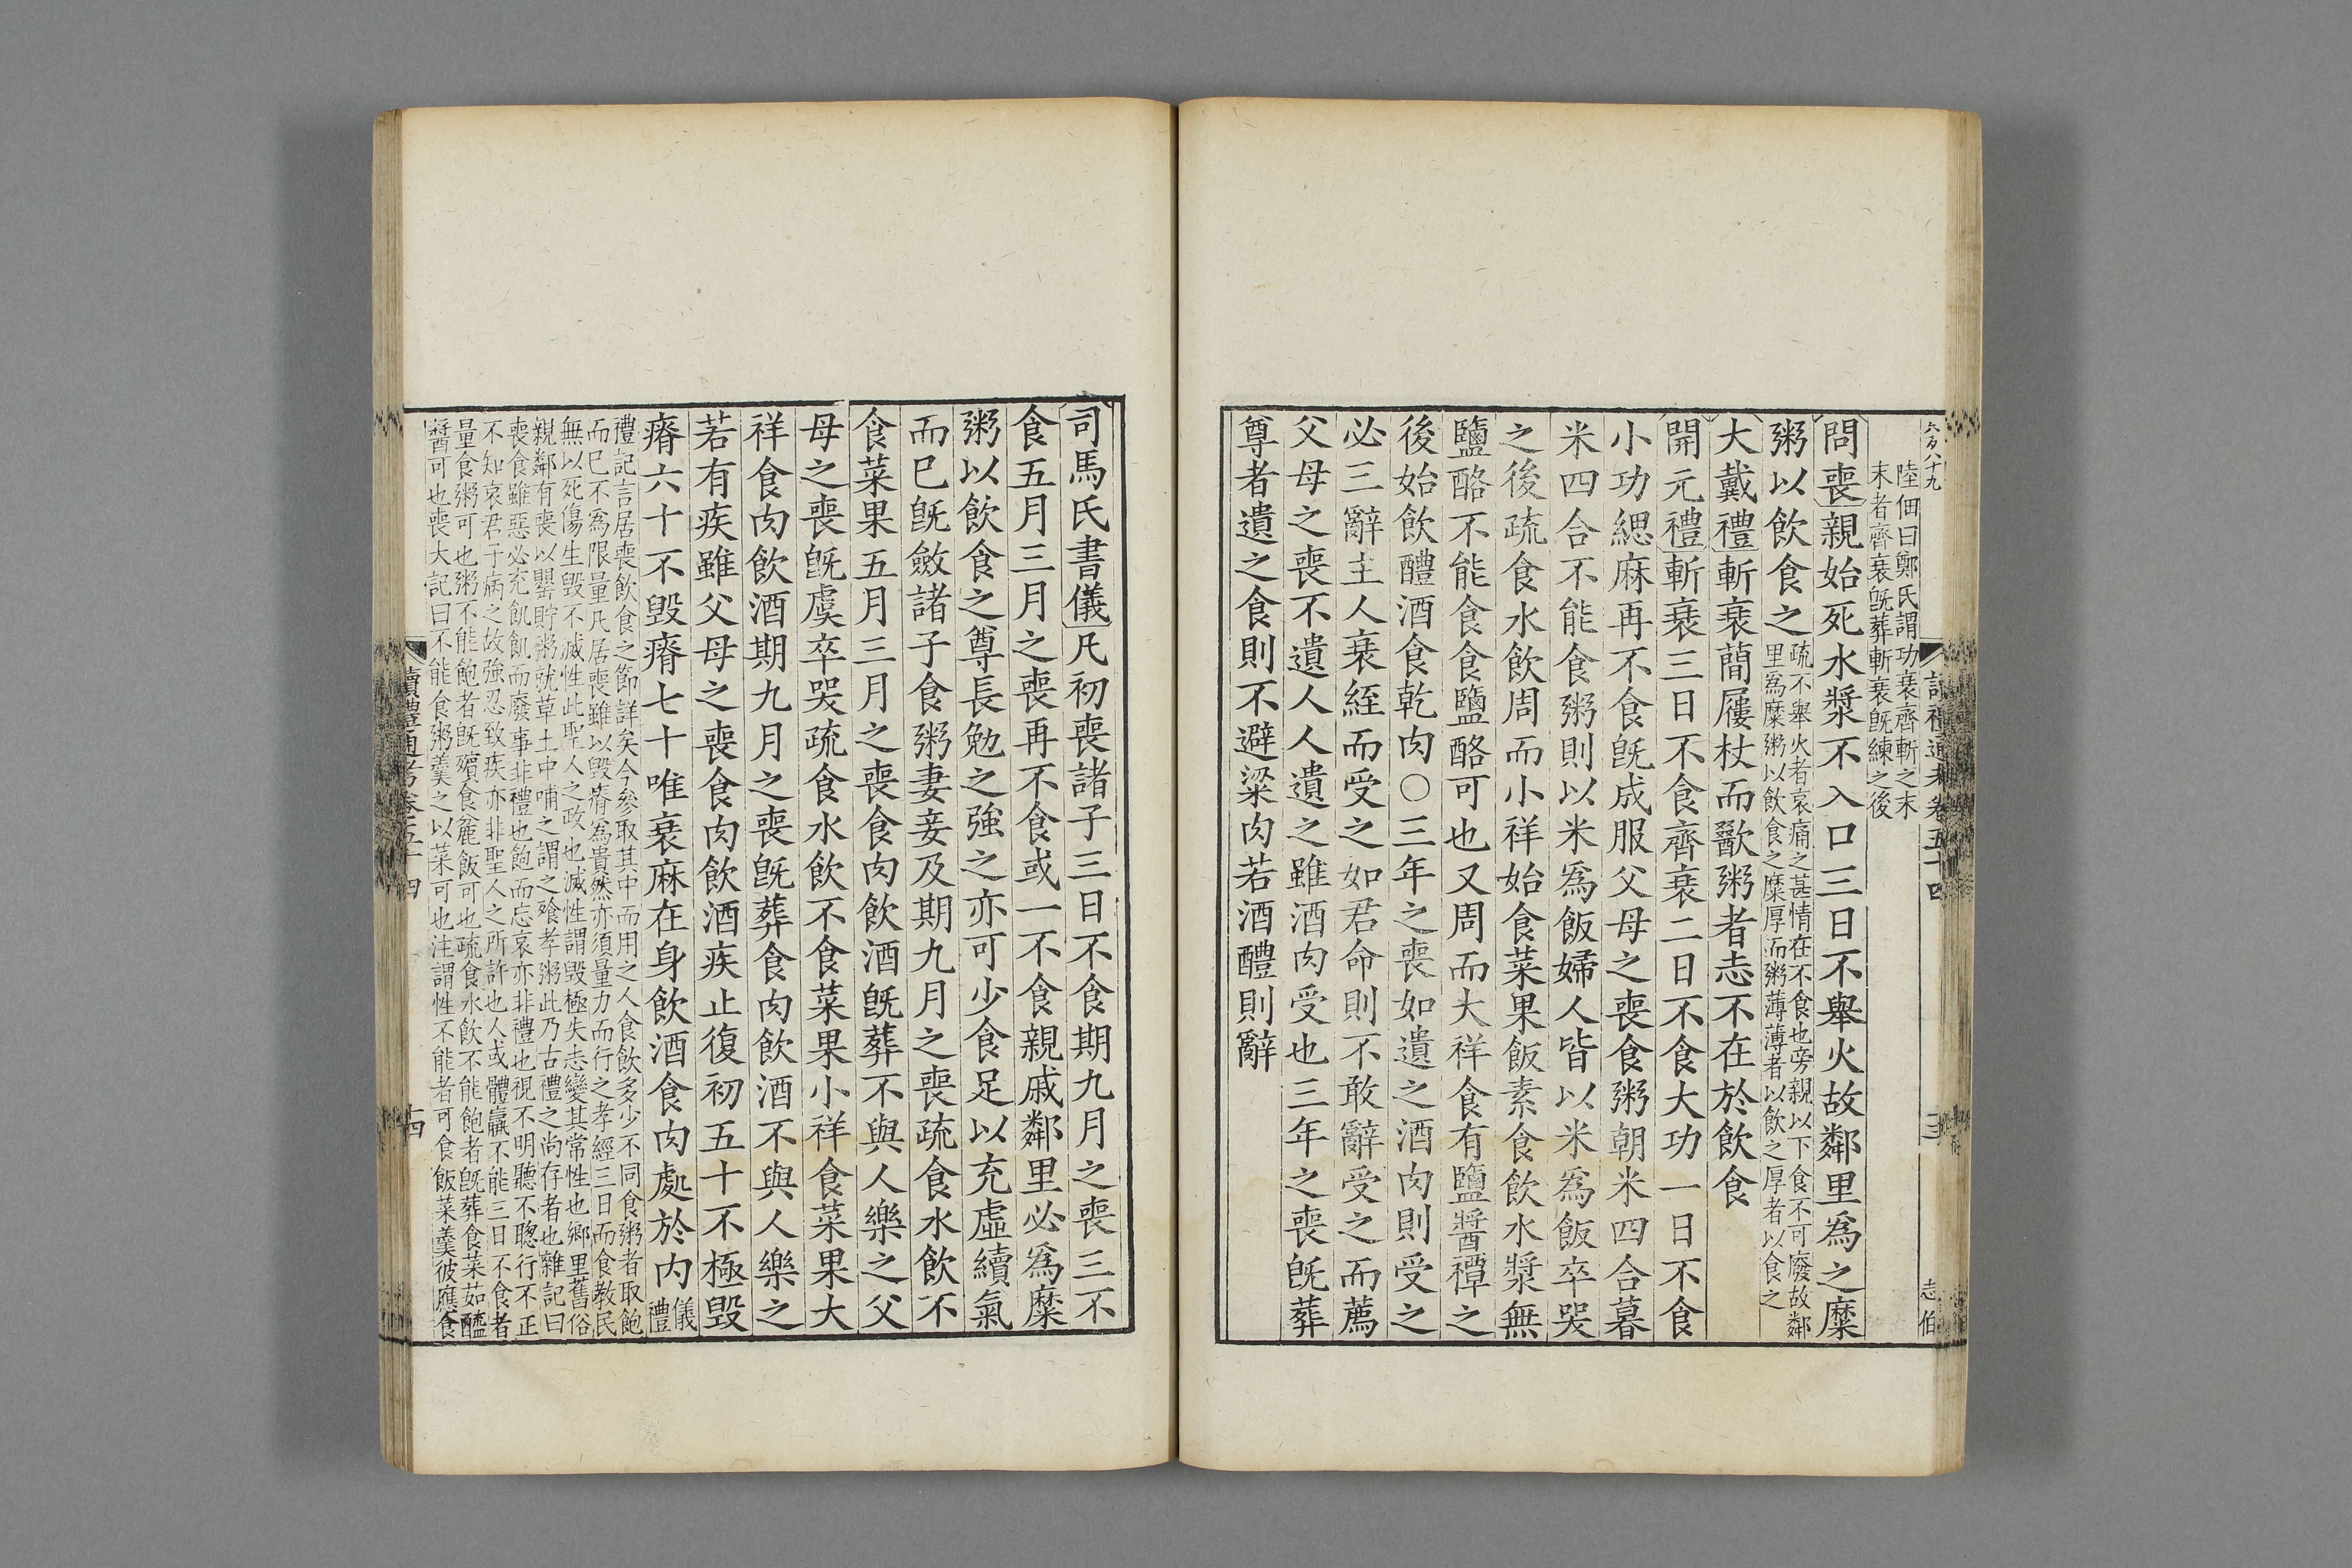 六百八十九
讀禮通考卷五十四
十三
志伯
陸佃曰鄭氏謂功衰齊斬之末
末者齊衰旣葬斬衰旣練之後
問喪親始死水漿不入口三日不舉火故鄰里爲之糜
粥以飲食之
疏不舉火者哀痛之甚情在不食也旁親以下食不可廢故鄰
里爲糜粥以飲食之糜厚而粥薄薄者以飲之厚者以食之
大戴禮斬衰蕳屨杖而歠粥者志不在於飲食
開元禮斬衰三日不食齊衰二日不食大功一日不食
小功緦麻再不食旣成服父母之喪食粥朝米四合暮
米四合不能食粥則以米爲飯婦人皆以米爲飯卒哭
之後疏食水飲周而小祥始食菜果飯素食飲水漿無
鹽酪不能食食鹽酪可也又周而大祥食有鹽醬禫之
後始飲醴酒食乾肉○三年之喪如遺之酒肉則受之
必三辭主人衰絰而受之如君命則不敢辭受之而薦
父母之喪不遺人人遺之雖酒肉受也三年之喪旣葬
尊者遺之食則不避粱肉若酒醴則辭
司馬氏書儀凡初喪諸子三日不食期九月之喪三不
食五月三月之喪再不食或一不食親戚鄰里必爲糜
粥以飲食之尊長勉之強之亦可少食足以充虛續氣
而已旣斂諸子食粥妻妾及期九月之喪疏食水飲不
食菜果五月三月之喪食肉飲酒旣葬不與人樂之父
母之喪旣虞卒哭疏食水飲不食菜果小祥食菜果大
祥食肉飲酒期九月之喪旣葬食肉飲酒不與人樂之
若有疾雖父母之喪食肉飲酒疾止復初五十不極毀
瘠六十不毀瘠七十唯衰麻在身飲酒食肉處於內
儀
禮
禮記言居喪飲食之節詳矣今參取其中而用之人食飲多少不同食粥者取飽
而已不爲限量凡居喪雖以毀瘠爲貴然亦須量力而行之孝經三日而食教民
無以死傷生毀不滅性此聖人之政也滅性謂毀極失志變其常性也鄉里舊俗
親鄰有喪以罌貯粥就草土中哺之謂之飧孝粥此乃古禮之尚存者也雜記曰
喪食雖惡必充飢飢而廢事非禮也飽而忘哀亦非禮也視不明聽不聰行不正
不知哀君子病之故強忍致疾亦非聖人之所許也人或體羸不能三日不食者
量食粥可也粥不能飽者旣殯食麄飯可也疏食水飲不能飽者旣葬食菜茹醯
醬可也喪大記曰不能食粥羹之以菜可也注謂性不能者可食飯菜羹彼應食
讀禮通考卷五十四
十四